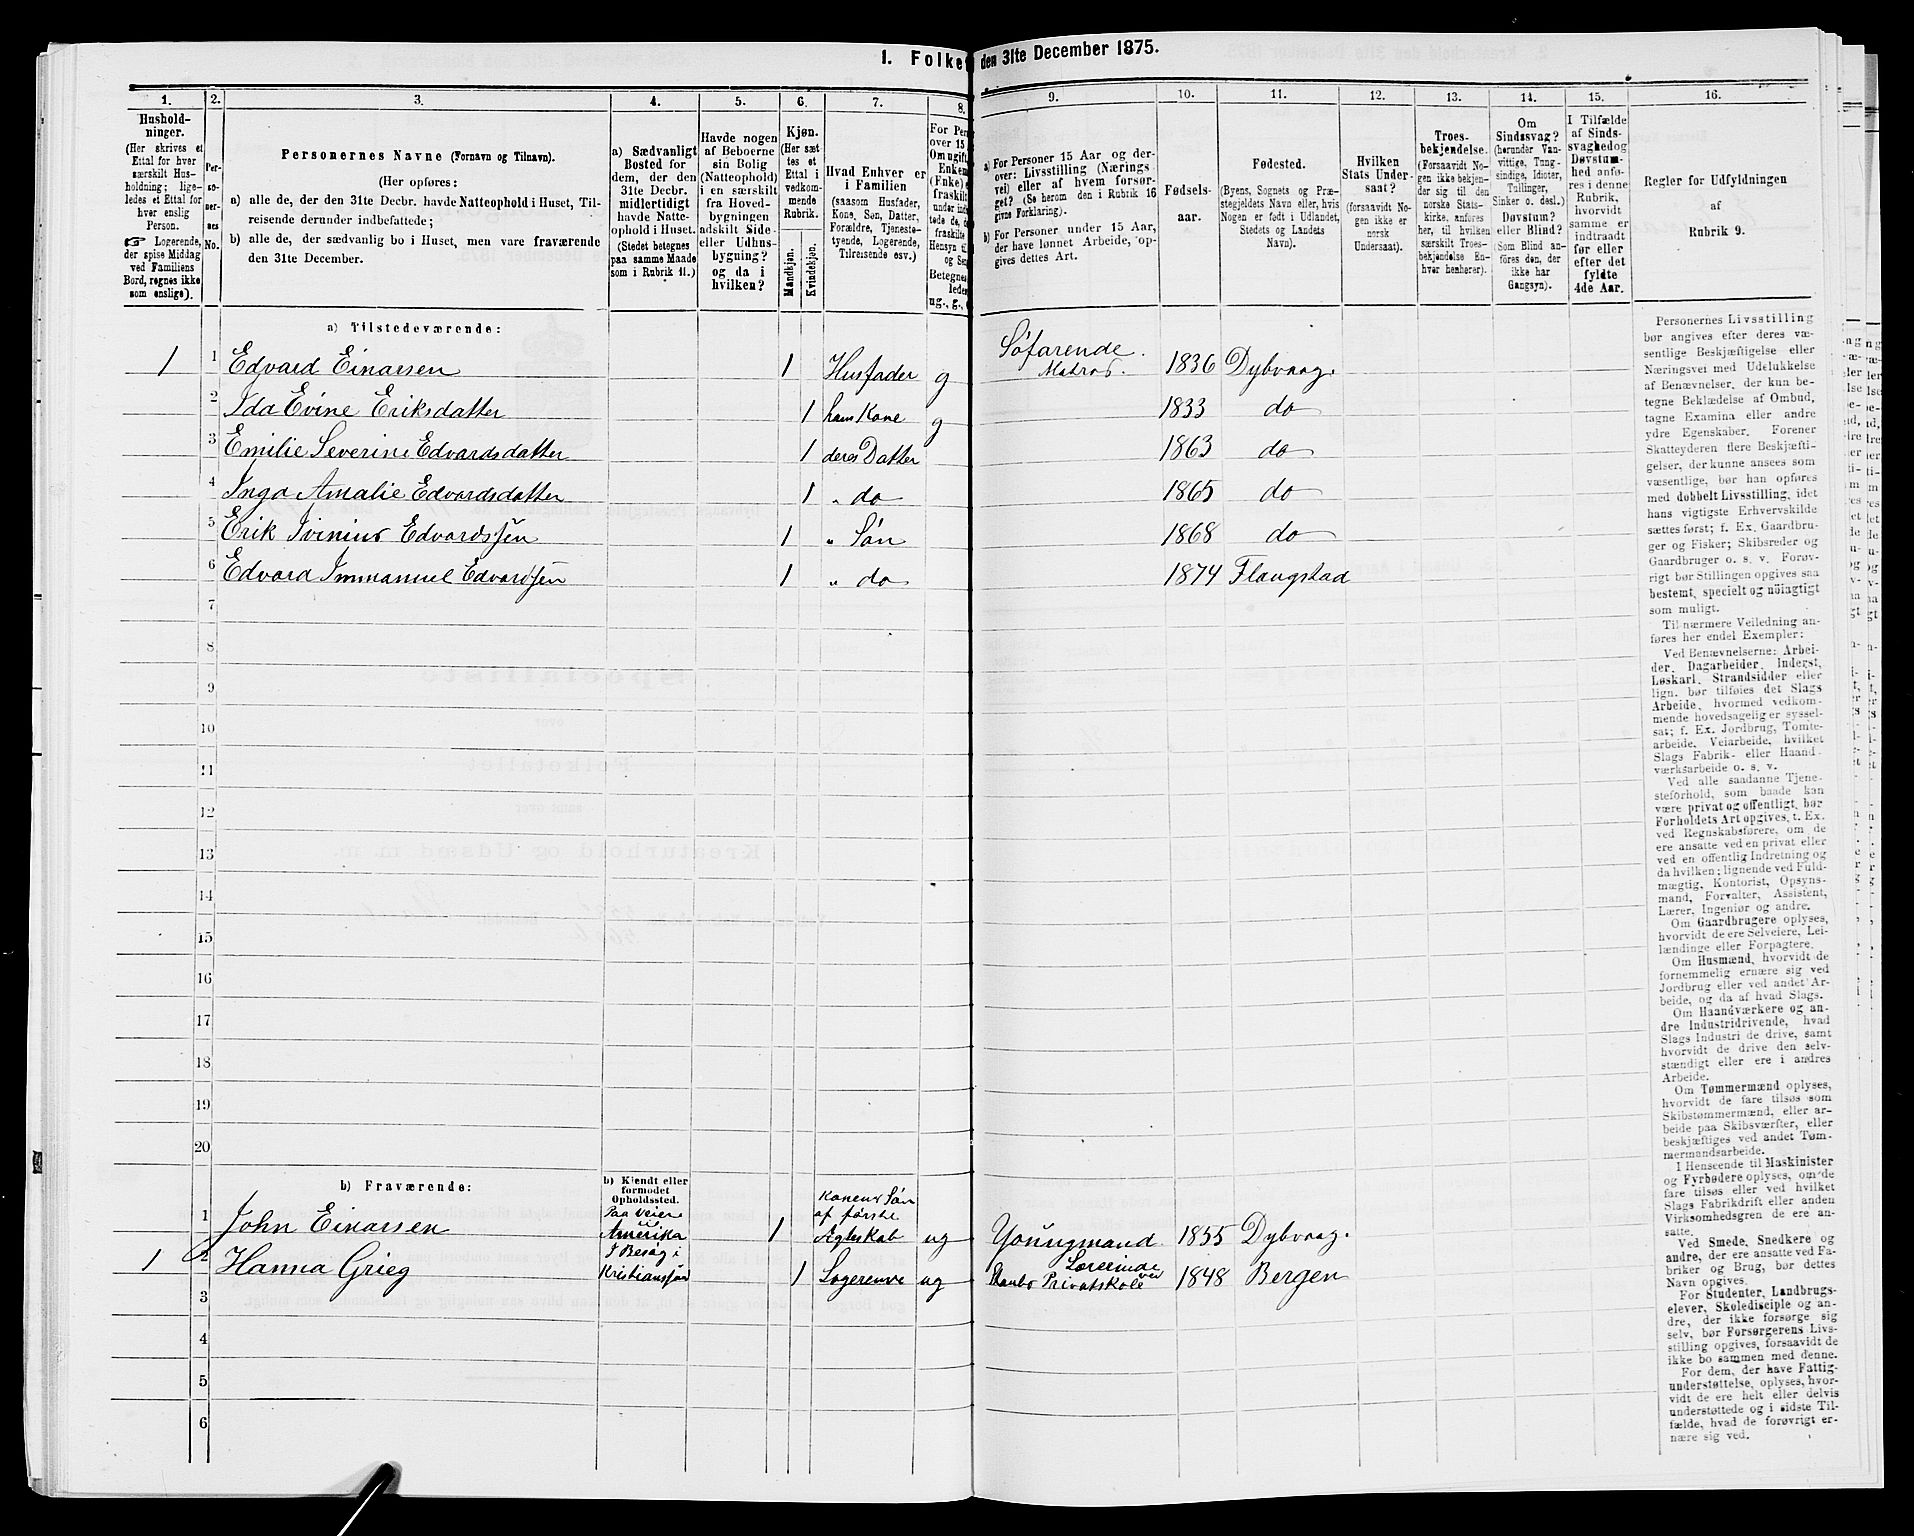 1. Folke den 31te December 1875.
1. 2. 3. 4. 5. 6. 7. 8. 9. 10. 11. 12. 13. 14. 15. 16.
Hushold-
ninger.
(Her skrives et
Ettal for hver
særskilt Hus-
holdning; lige-
ledes et Ettal for
hver enslig
Person.
☞ Logerende,
der spise Middag
ved Familiens
Bord, regnes ikke
som enslige).
Per-
so-
ner-
nes
No.
Personernes Navne (Fornavn og Tilnavn).
(Her opføres:
a) alle de, der den 31te Decbr. havde Natteophold i Huset, Til-
reisende derunder indbefattede;
b) alle de, der sædvanlig bo i Huset, men vare fraværende
den 31te December.
a) Sædvanligt
Bosted for
dem, der den
31te Decbr.
midlertidigt
havde Natte-
ophold i Huset.
(Stedet betegnes
paa samme Maade
som i Rubrik 11.)
Havde nogen
af Beboerne
sin Bolig
(Natteophold)
i en særskilt
fra Hoved-
bygningen
adskilt Side-
eller Udhus-
bygning?
og da i
hvilken?
Kjøn.
(Her sæt-
tes et
Ettal i
vedkom-
mende
Rubrik.
Mandkjøn.
Kvindekjøn.
Hvad Enhver er
i Familien
(saasom Husfader,
Kone, Søn, Datter,
Forældre, Tjeneste-
tyende, Logerende,
Tilreisende osv.)
For Per
over 15
Om ugift
Enkem
(Enke) e
fraskilt
under ind
tede de,
fraskilte
Hensyn til
og Se
Betegnes
ledes
ug., g.,
a) For Personer 15 Aar og der-
over: Livsstilling (Nærings-
vei) eller af hvem forsør-
get? (Se herom den i Rubrik 16
givne Forklaring).
b) For Personer under 15 Aar,
der have lønnet Arbeide, op-
gives dettes Art.
Fødsels-
aar.
Fødested.
(Byens, Sognets og Præ-
stegjeldets Navn eller, hvis
Nogen er født i Udlandet,
Stedets og Landets
Navn).
Hvilken
Stats Under-
saat?
(forsaavidt No-
gen ikke er
norsk
Undersaat).
Troes-
bekjendelse.
(Forsaavidt No-
gen ikke bekjen-
der sig til den
norske Stats-
kirke, anføres
her, til hvilken
særskilt Troes-
bekjendelse En-
hver henhører).
Om
Sindssvag?
(herunder Van-
vittige, Tung-
sindige, Idioter,
Tullinger,
Sinker o. desl.)
Døvstum?
eller Blind?
(Som Blind an-
føres den, der
ikke har
Gangsyn).
I Tilfælde
af Sinds-
svaghed og
Døvstum-
hed anfø-
res i denne
Rubrik,
hvorvidt
samme er
indtraadt
før eller
efter det
fyldte
4de Aar.
Regler for Udfyldningen
af
Rubrik 9.
a) Tilstedeværende:
1 1 Edvard Einarsen 1 Husfader g Søfarende. Matros. 1836 Dybvaag.
2 Ida Evine Eriksdatter 1 hans Kone g 1833 do
3 Emilie Severine Edvardsdatter 1 deres Datter 1863 do
4 Inga Amalie Edvardsdatter 1 " do 1865 do
5 Erik Ivinius Edvardssøn 1 " Søn 1868 do
6 Edvard Immanuel Edvardsøn 1 " do 1874 Flaugstad
7
8
9
10
11
12
13
14
15
16
17
18
19
20
b) Fraværende:
b) Kjendt eller
formodet
Opholdssted.
1 John Einarsen Paa Veien til Amerika 1 Konens Søn af første Ægteskab ug Youngmand 1855 Dybvaag.
1 2 Hanna Grieg I Besøg i Kristianssand 1 Logerende ug Lærerinde ved Privatskole 1848 Bergen
3
4
5
6
Personernes Livsstilling
bør angives efter deres væ-
sentlige Beskjæftigelse eller
Næringsvei med Udelukkelse
af Benævnelser, der kun be-
tegne Beklædelse af Ombud,
tagne Examina eller andre
ydre Egenskaber. Forener
Skatteyderen flere Beskjæfti-
gelser, der kunne ansees som
væsentlige, bør han opføres
med dobbelt Livsstilling, idet
hans vigtigste Erhvervskilde
sættes først; f. Ex. Gaardbru-
ger og Fisker; Skibsreder og
Gaardbruger o. s. v. Forøv-
rigt bør Stillingen opgives saa
bestemt, specielt og nöiagtigt
som muligt.
Til nærmere Veiledning an-
føres her endel Exempler:
Ved Benævnelserne: Arbei-
der, Dagarbeider, Inderst,
Løskarl, Strandsidder eller
lign. bør tilføies det Slags
Arbeide, hvormed vedkom-
mende hovedsagelig er syssel-
sat; f. Ex. Jordbrug, Tomte-
arbeide, Veiarbeide, hvilket
Slags Fabrik- eller Haand-
værksarbeide o. s. v.
Ved alle saadanne Tjene-
steforhold, som baade kan
være privat og offentligt, bør
Forholdets Art opgives, t. Ex.
ved Regnskabsførere, om de
ere ansatte ved en privat eller
ved en offentlig Indretning og
da hvilken; lignende ved Fuld-
mægtig, Kontorist, Opsyns-
mand, Forvalter, Assistent,
Lærer, Ingeniør og andre.
Om Gaardbrugere oplyses,
hvorvidt de ere Selveiere, Lei-
lændinge eller Forpagtere.
Om Husmænd, hvorvidt de
fornemmelig ernære sig ved
Jordbrug eller ved andet Ar-
beide, og da af hvad Slags.
Om Haandværkere og an-
dre Industridrivende, hvad
Slags Industri de drive, samt
hvorvidt de drive den selv-
stændigt eller ere i andres
Arbeide.
Om Tømmermænd oplyses,
hvorvidt de fare tilsøs som
Skibstømmermænd, eller ar-
beide paa Skibsværfter, eller
beskjæftiges ved andet Tøm-
mermandsarbeide.
I Henseende til Maskinister
og Fyrbødere oplyses, om de
fare tilsøs eller ved hvilket
Slags Fabrikdrift eller anden
Virksomhedsgren de ere an-
satte.
Ved Smede, Snedkere og
andre, der ere ansatte ved Fa-
briker og Brug, bør dettes
Navn opgives.
For Studenter, Landbrugs-
elever, Skoledisciple og an-
dre, der ikke forsørge sig
selv, bør Forsørgerens Livs-
stilling opgives, forsaavidt de
ikke bo sammen med denne.
For dem, der have Fattig-
understøttelse, oplyses, hvor-
vidt de ere helt eller delvis
understøttede og i sidste Til-
fælde, hvad de forøvrigt er-
nære sig ved.